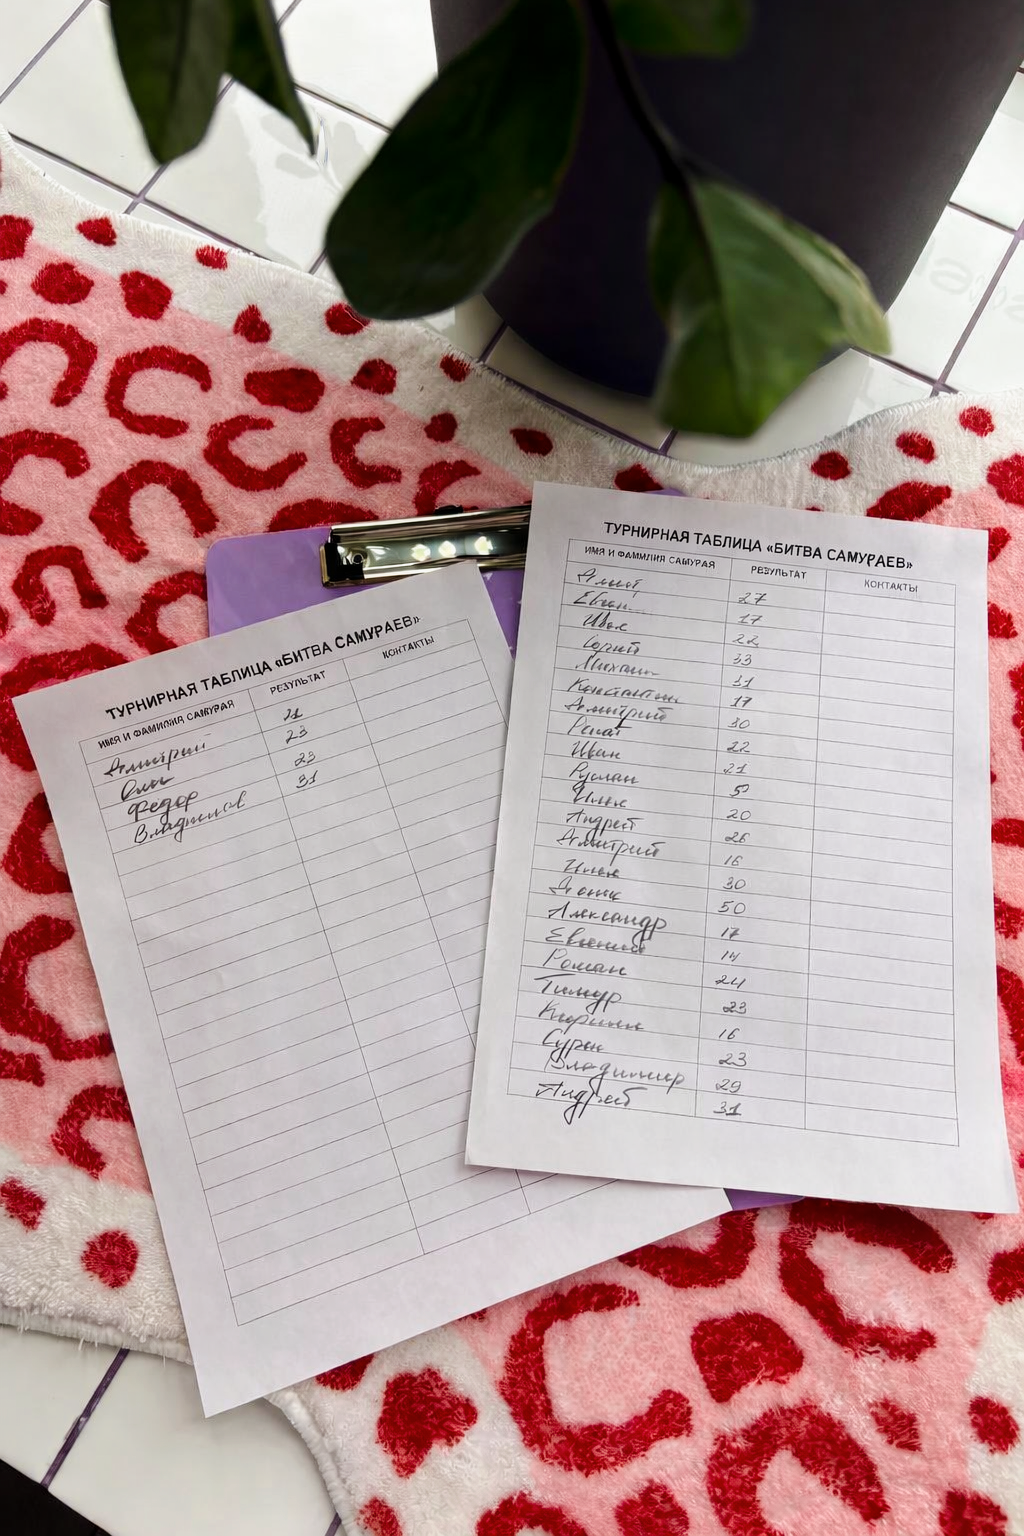 ТУРНИРНАЯ ТАБЛИЦА «БИТВА САМУРАЕВ»
ИМЯ И ФАМИЛИЯ САМУРАЯ РЕЗУЛЬТАТ КОНТАКТЫ
Дмитрий 21
Олег 23
Федор 23
Владислав 31
ТУРНИРНАЯ ТАБЛИЦА «БИТВА САМУРАЕВ»
ИМЯ И ФАМИЛИЯ САМУРАЯ РЕЗУЛЬТАТ КОНТАКТЫ
27
17
Илья 22
Сергей 33
Михаил 31
Константин 17
Дмитрий 30
Ренат 22
Иван 21
Руслан 5
Илья 20
Андрей 26
Дмитрий 16
Илья 30
Денис 50
Александр 17
Евгений 14
Роман 24
Тимур 23
Кирилл 16
Сурен 23
Владимир 29
Андрей 31